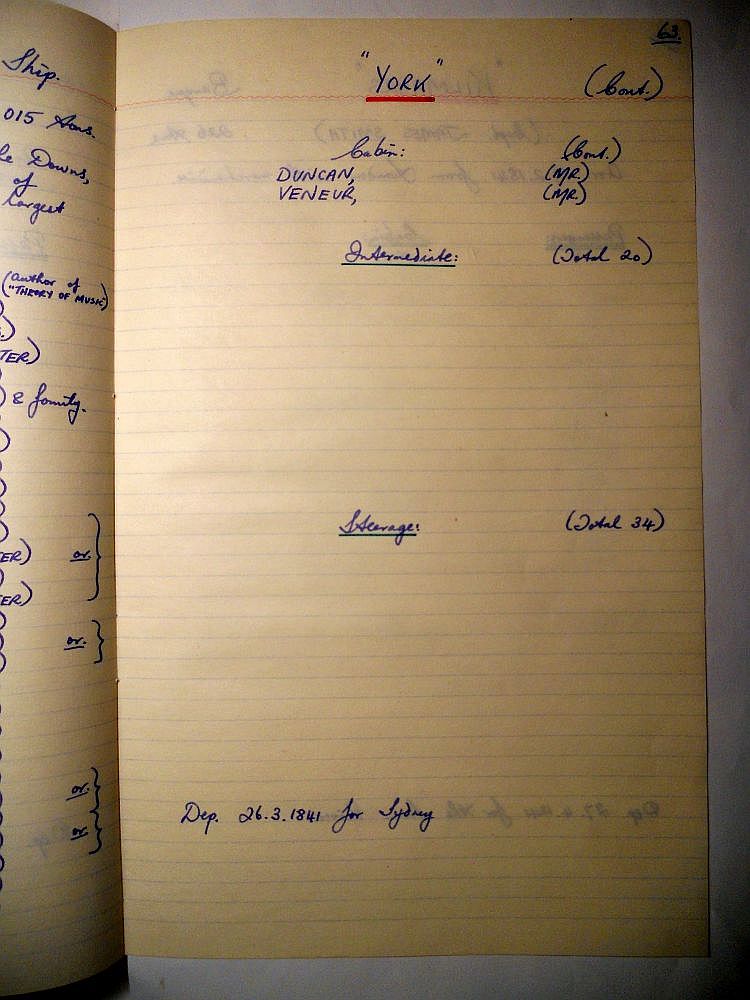 Ship.
015 Tons.
Downs,
of
largest
(author of
"THEORY OF MUSIC)
TER)
& family.
ER) or.
ER)
or.
or.
or.
63.
"YORK" (Cont.)
Cabin: (Cont.)
DUNCAN, (MR)
VENEUR, (MR)
Intermediate: (Total 20)
Steerage: (Total 34)
Dep. 26.3.1841 for Sydney